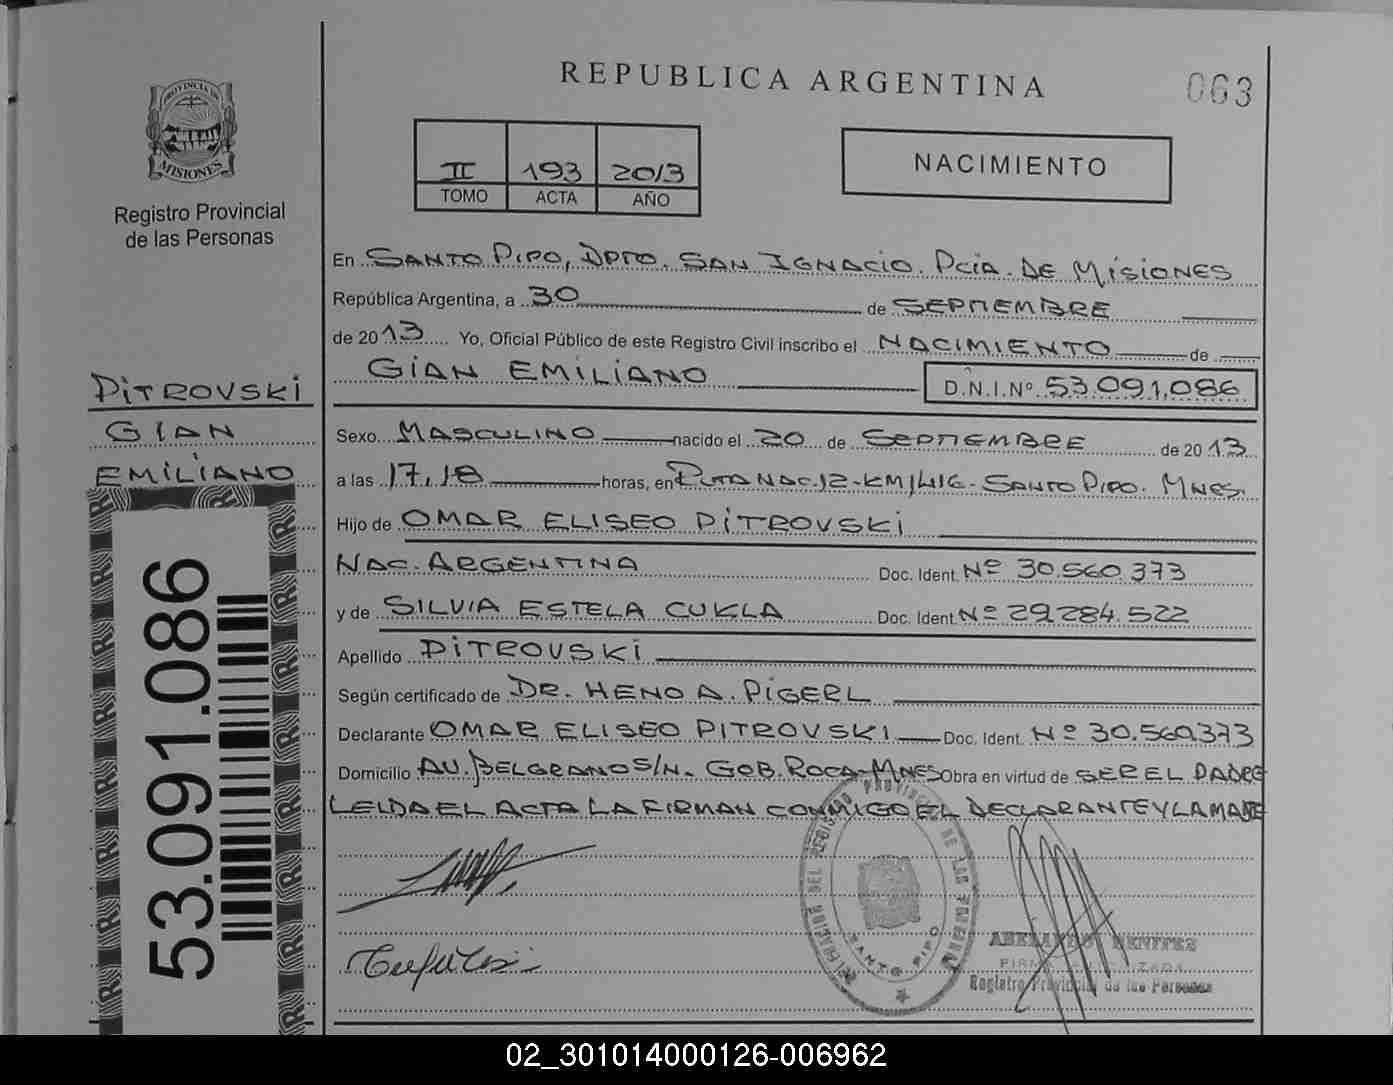 REPUBLICA ARGENTINA
063
PROVINCIA DE
MISIONES
Registro Provincial
de las Personas
II 193 2013
TOMO ACTA AÑO
NACIMIENTO
En SANTO PIPO, DPTO. SAN IGNACIO. PCIA. DE MISIONES
República Argentina, a 30 de SEPTIEMBRE
de 2013 Yo, Oficial Público de este Registro Civil inscribo el NACIMIENTO de
GIAN EMILIANO
D.N.I. Nº 53.091.086
PITROVSKI
GIAN
EMILIANO
53.091.086
Sexo MASCULINO nacido el 20 de SEPTIEMBRE de 2013
a las 17,18 horas, en RUTA NAC.12-KM1416-SANTO PIPO. MNES.
Hijo de OMAR ELISEO PITROVSKI
NAC. ARGENTINA Doc. Ident. Nº 30.560.373
y de SILVIA ESTELA CUKLA Doc. Ident. Nº 29.284.522
Apellido PITROVSKI
Según certificado de DR. HENO A. PIGERL
Declarante OMAR ELISEO PITROVSKI Doc. Ident. Nº 30.560.373
Domicilio AV. BELGRANO S/N. GOB. ROCA-MNES Obra en virtud de SER EL PADRE
LEIDA EL ACTA LA FIRMAN CONMIGO EL DECLARANTE Y LA MADRE
SANTO PIPO
BENITEZ
Registro Provincial de las Personas
02_301014000126-006962